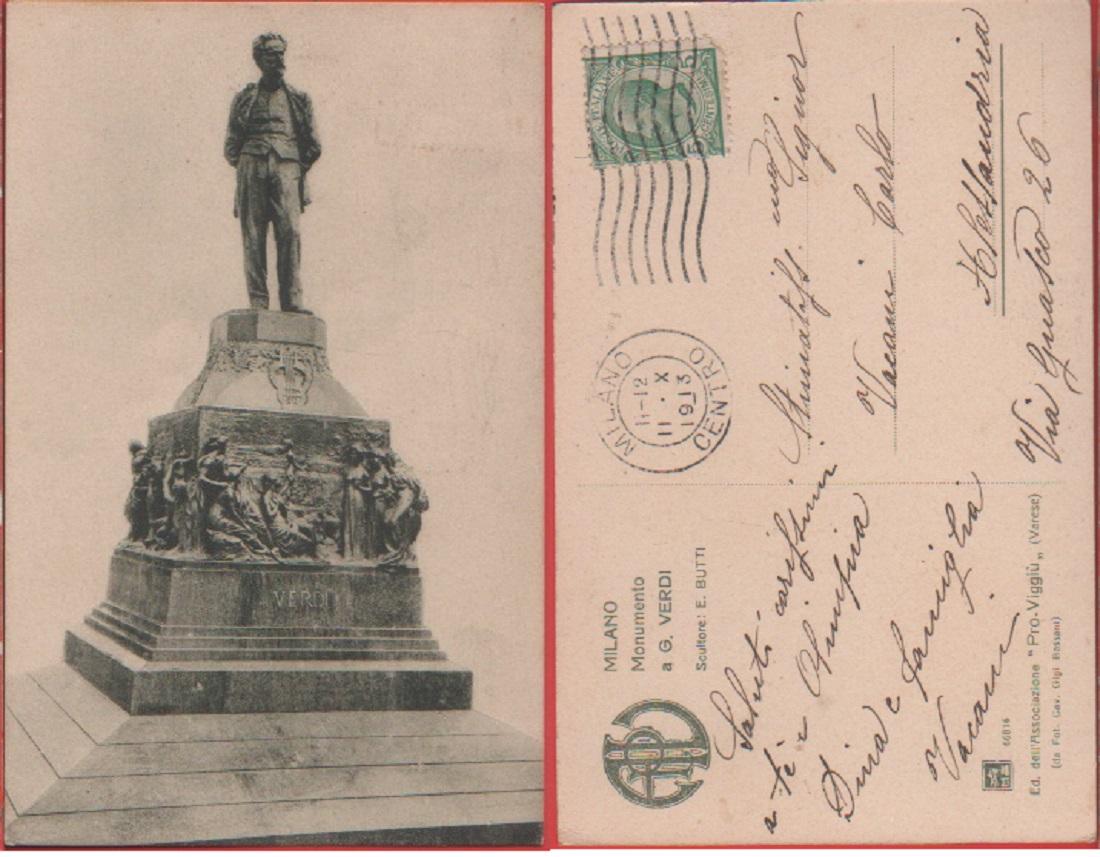 VERDI
POSTE ITALIANE
5 CENTESIMI 5
MILANO
CENTRO
11-12
11·X
1913
MILANO
Monumento
a G. VERDI
Scultore: E. BUTTI
Saluti carissimi
a te e
Dina e famiglia
Vacani
Stimatiss. mo Signor
Vacani Carlo
Alessandria
Via Guasco 26
66816
Ed. dell'Associazione "Pro-Viggiù„ (Varese)
(da Fot. Cav. Gigi Bassani)